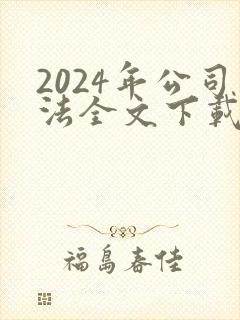 2024年公司
法全文下载
福島春佳